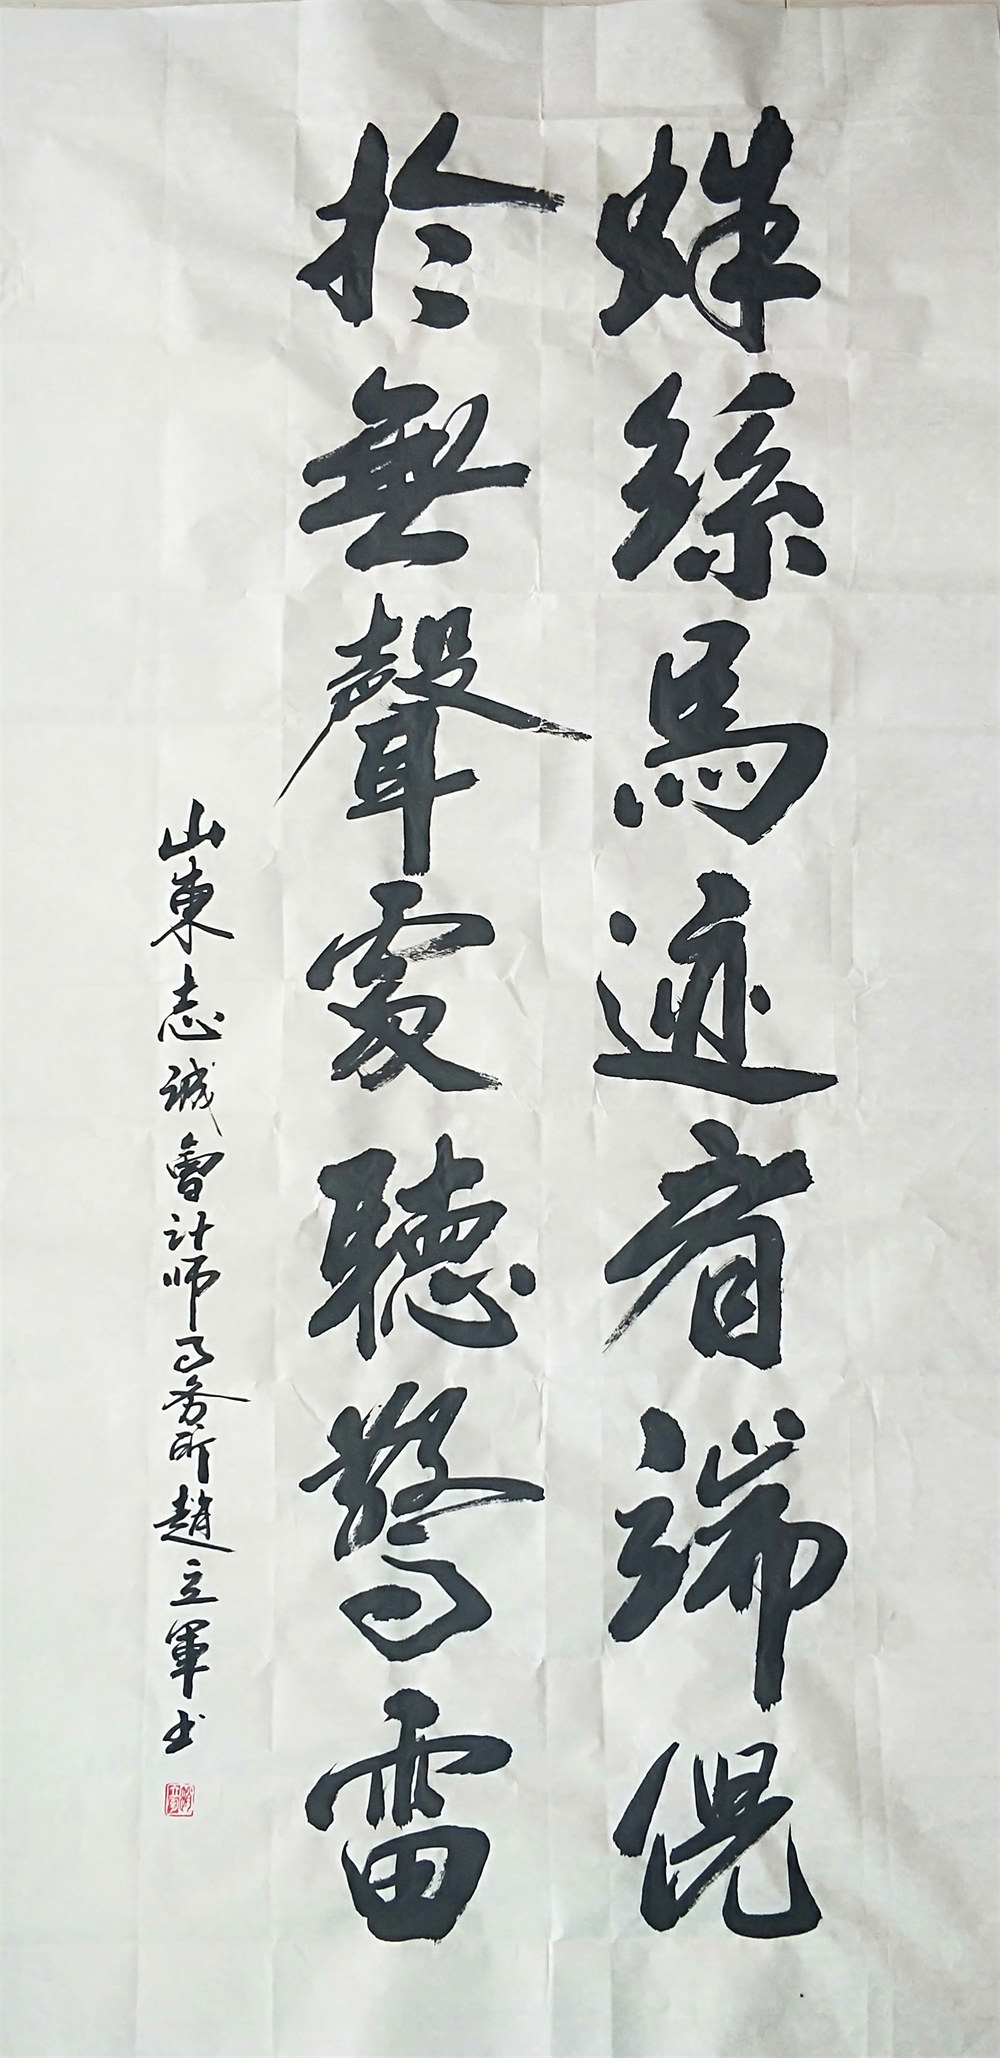 蛛絲馬迹看端倪
於無聲處聽驚雷
山東志誠會计师事务所趙立軍书